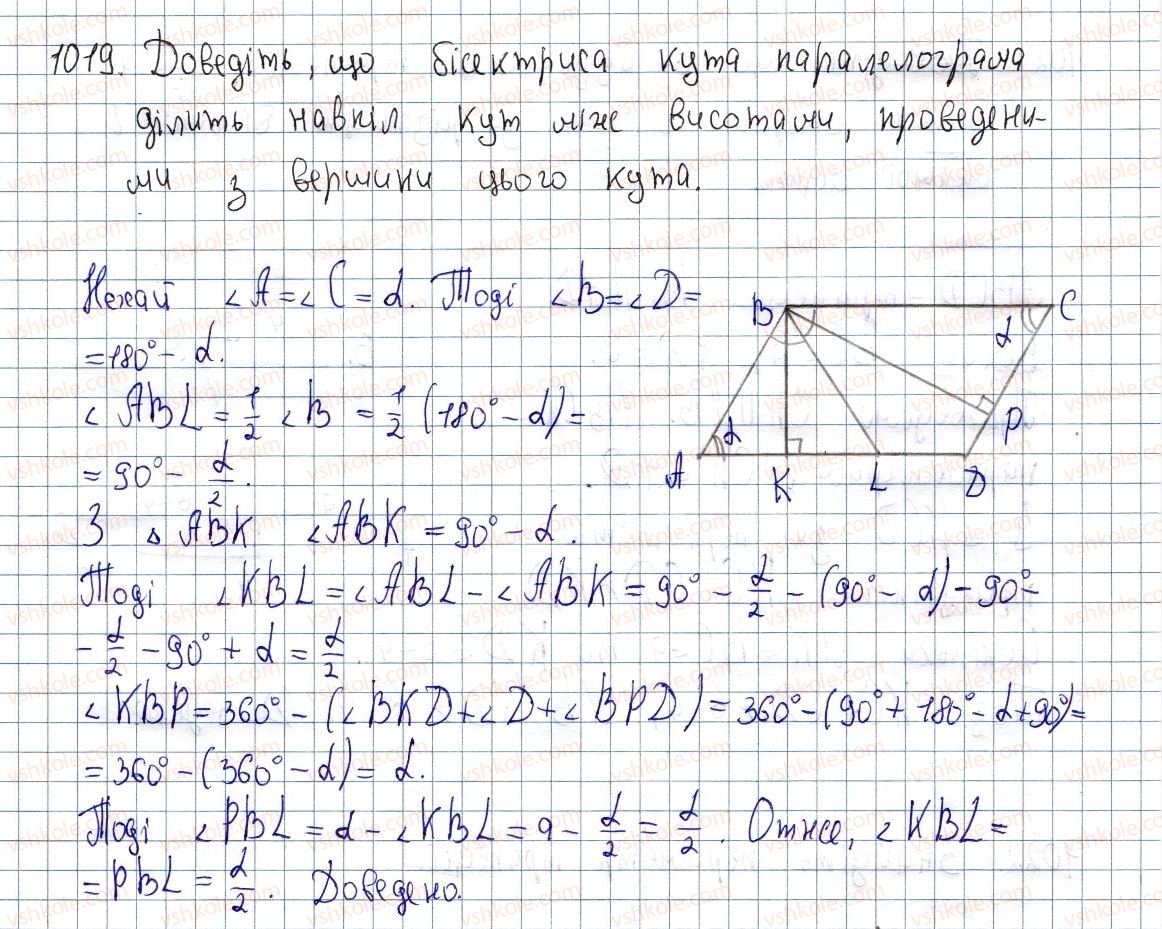 1019. Доведіть, що бісектриса кута паралелограма
ділить навпіл кут між висотами, проведени-
ми з вершини цього кута.
Нехай ∠A = ∠C = α. Тоді ∠B = ∠D =
= 180° - α.
∠ABL = 1/2 ∠B = 1/2 (180° - α) =
= 90° - α/2.
З △ABK ∠ABK = 90° - α.
Тоді ∠KBL = ∠ABL - ∠ABK = 90° - α/2 - (90° - α) - 90° -
- α/2 - 90° + α = α/2
∠KBP = 360° - (∠BKD + ∠D + ∠BPD) = 360° - (90° + 180° - α + 90°) =
= 360° - (360° - α) = α.
Тоді ∠PBL = α - ∠KBL = α - α/2 = α/2. Отже, ∠KBL =
= PBL = α/2. Доведено.
B
C
α
α
P
A
K
L
D